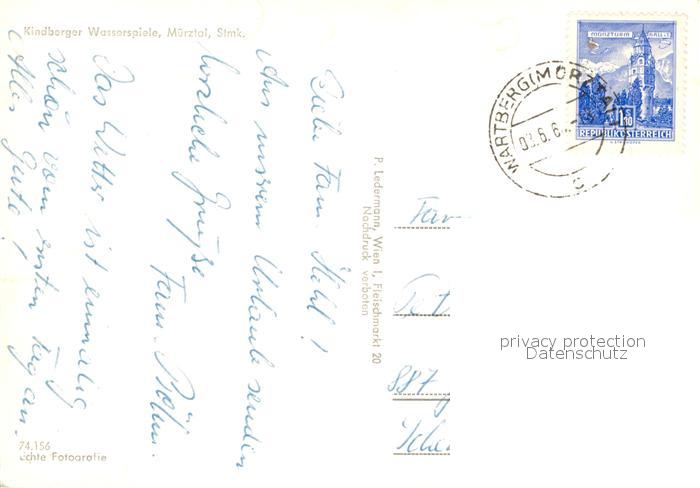 Kindberger Wasserspiele, Mürztal, Stmk.
Liebe Fam. !
Aus unserem Urlaub senden
herzliche Grüße
Fam.
Das Wetter ist einmalig
schön vom ersten Tag an.
Alles Gute!
P. Ledermann, Wien I, Fleischmarkt 20
Nachdruck verboten
74.156
Echte Fotografie
MÜNZTURM HALL i. T.
1.50
REPUBLIK ÖSTERREICH
WARTBERG (MÜRZTAL)
03.6.6
c
Fam
887
privacy protection
Datenschutz